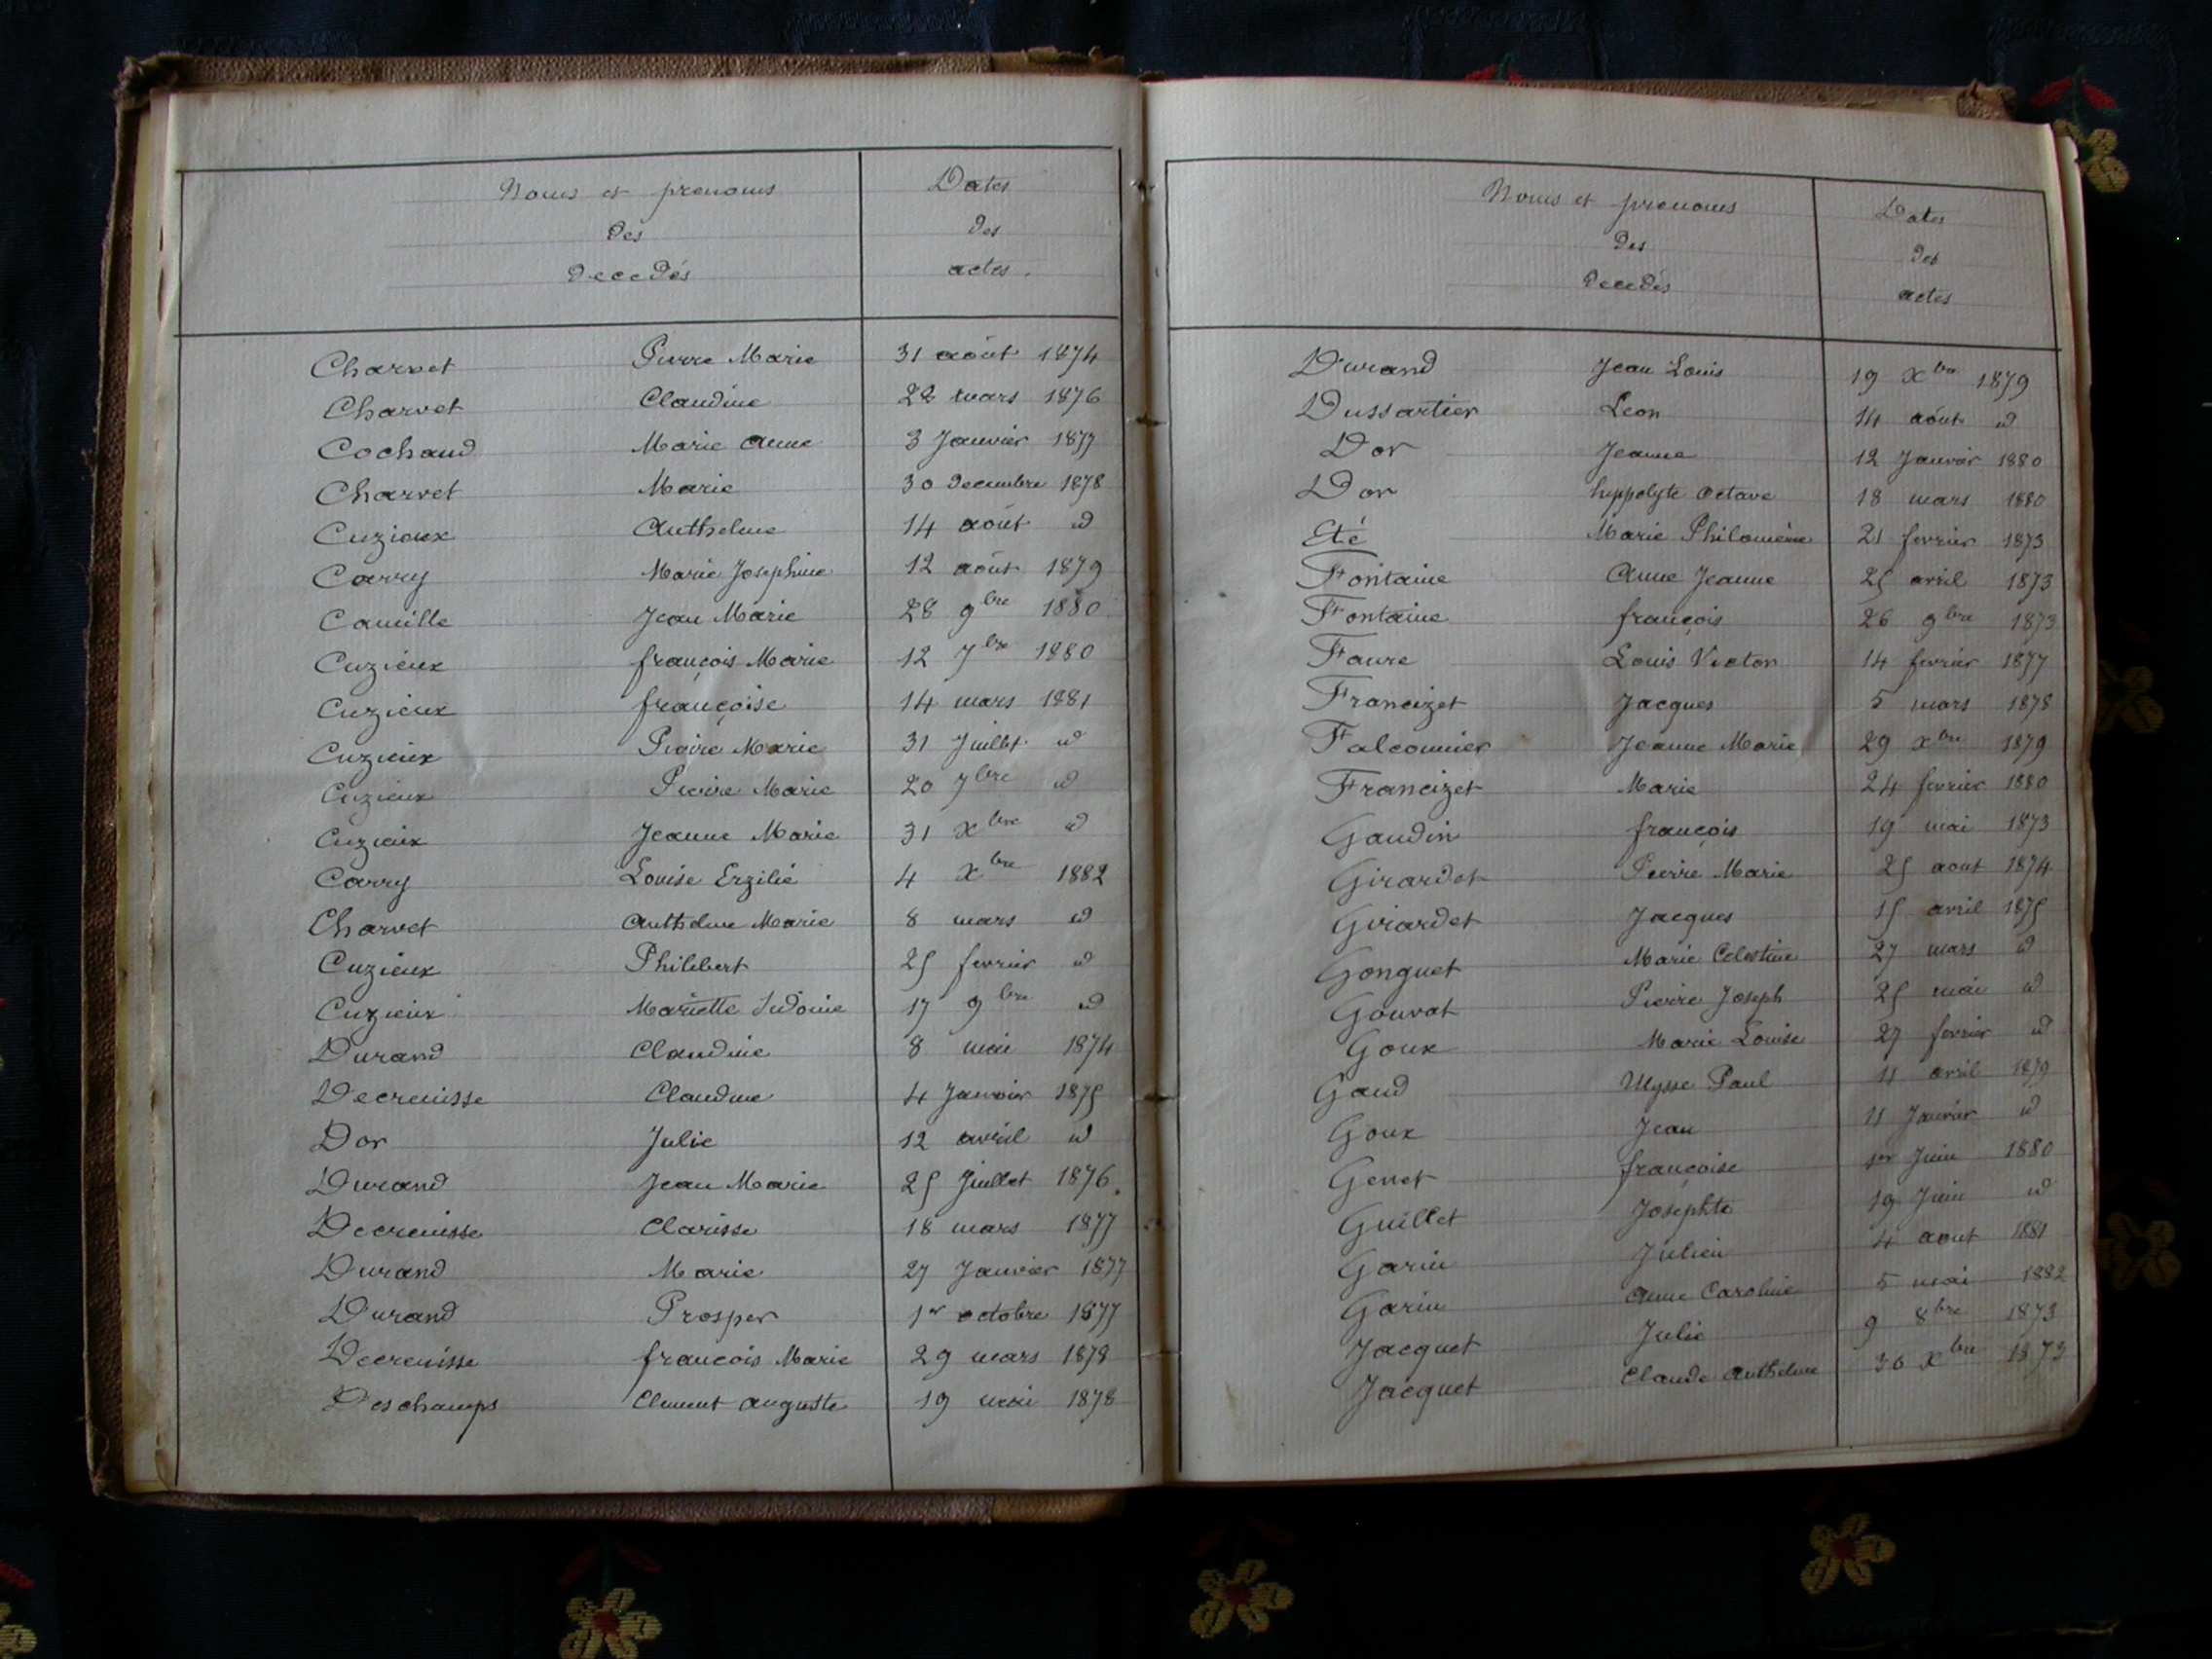 Noms et prenoms
des
decedés
Dates
des
actes.
Charvet Pierre Marie 31 août 1874
Charvet Claudine 22 mars 1876
Cochaud Marie Anne 3 Janvier 1877
Charvet Marie 30 decembre 1878
Cuzieux Anthelme 14 août id
Carry Marie Josephine 12 août 1879
Camille Jean Marie 28 9bre 1880
Cuzieux françois Marie 12 7bre 1880
Cuzieux françoise 14 mars 1881
Cuzieux Pierre Marie 31 Juillet id
Cuzieux Pierre Marie 20 7bre id
Cuzieux Jeanne Marie 31 Xbre id
Carry Louise Erzilie 4 Xbre 1882
Charvet Anthelme Marie 8 mars id
Cuzieux Philibert 25 fevrier id
Cuzieux Mariette Sidonie 17 9bre id
Durand Claudine 8 mai 1874
Decreusse Claudine 4 Janvier 1875
Dor Julie 12 avril id
Durand Jean Marie 25 Juillet 1876
Decreuisse Clarisse 18 mars 1877
Durand Marie 27 Janvier 1877
Durand Prosper 1er octobre 1877
Decreuisse françois Marie 29 mars 1878
Deschamps Clement Auguste 19 mai 1878
Noms et prenoms
des
decedés
Dates
des
actes
Durand Jean Louis 19 Xbre 1879
Dussartier Leon 14 août id
Dor Jeanne 12 Janvier 1880
Dor hyppolyte Octave 18 mars 1880
Eté Marie Philomène 21 fevrier 1873
Fontaine Anne Jeanne 25 avril 1873
Fontaine françois 26 9bre 1873
Faure Louis Victor 14 fevrier 1877
Francizet Jacques 5 mars 1878
Falconnier Jeanne Marie 29 Xbre 1879
Francizet Marie 24 fevrier 1880
Gaudin françois 19 mai 1873
Girardet Pierre Marie 25 aout 1874
Girardet Jacques 15 avril 1875
Gonguet Marie Celestine 27 mars id
Gouvat Pierre Joseph 25 mai id
Goux Marie Louise 27 fevrier id
Gaud Ulysse Paul 11 avril 1879
Goux Jean 11 Janvier id
Genet françoise 1er Juin 1880
Guillet Josephte 19 Juin id
Garin Julien 4 aout 1881
Garin Anne Caroline 5 mai 1882
Jacquet Julie 9 8bre 1873
Jacquet Claude Anthelme 30 Xbre 1873